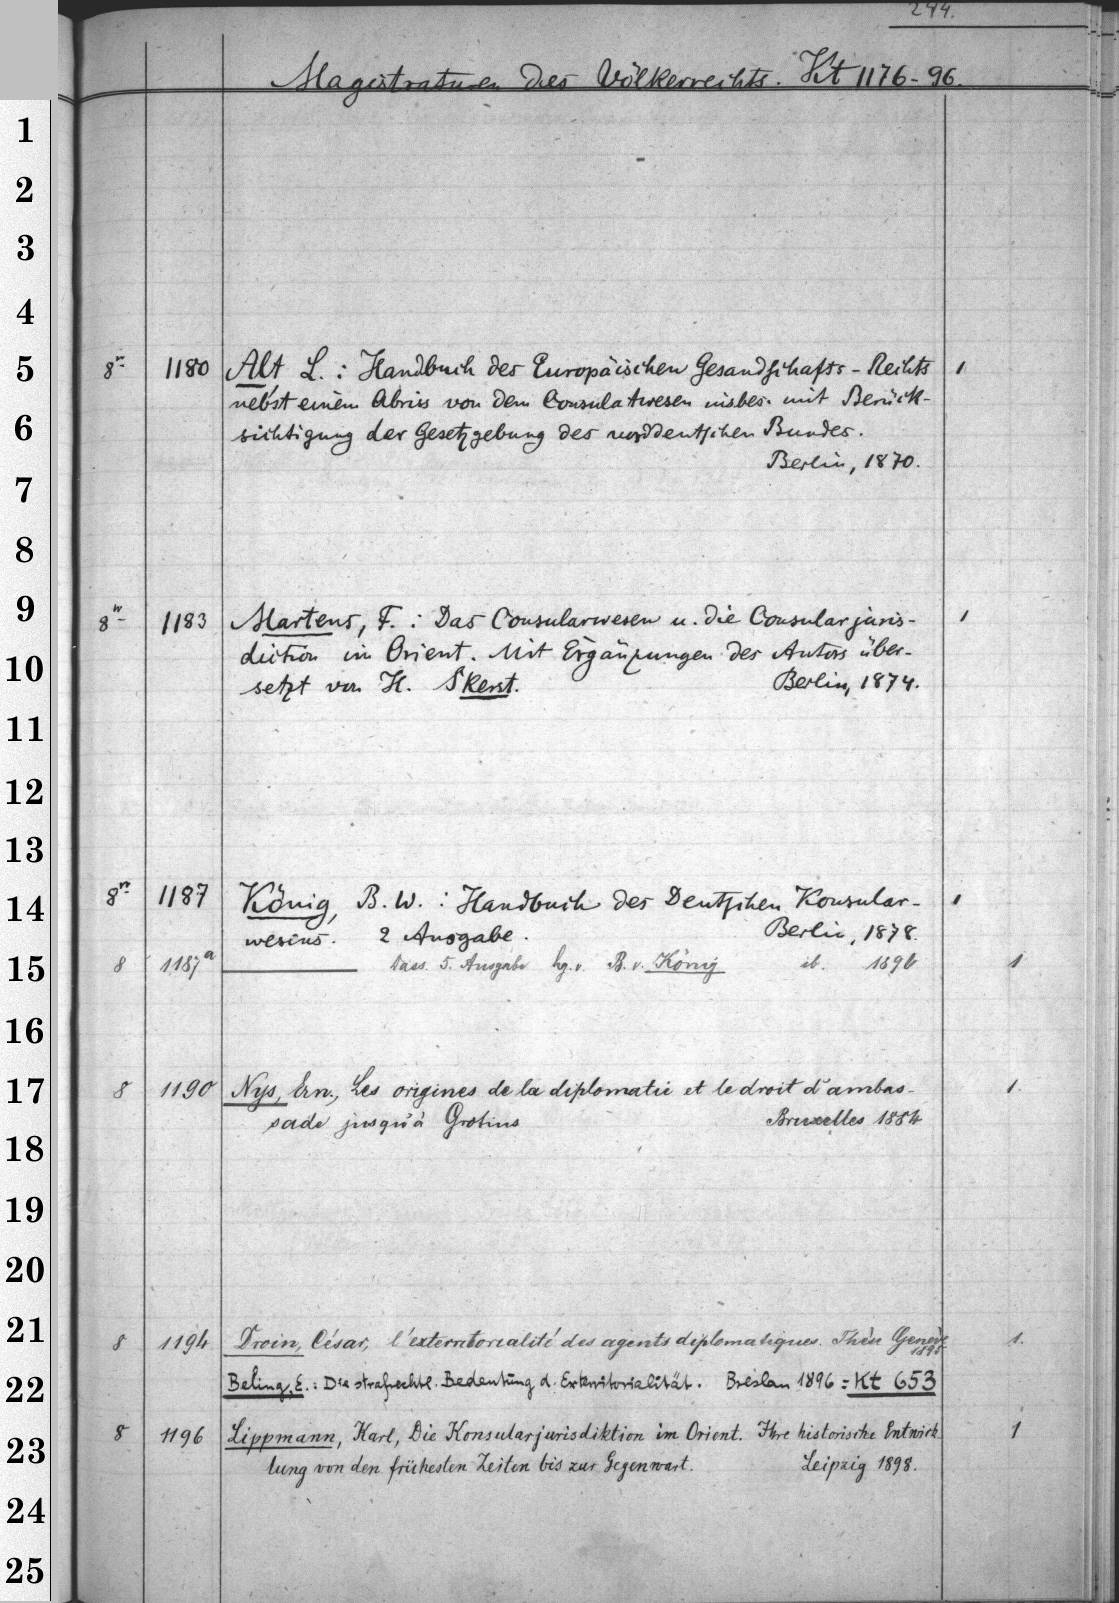 244.
Magistraturen des Völkerrechts. Kt 1176-96.
1
2
3
4
5
6
7
8
9
10
11
12
13
14
15
16
17
18
19
20
21
22
23
24
25
8º 1180 Alt L. : Handbuch des Europäischen Gesandschafts-Rechts 1
nebst einem Abriss von dem Consulatwesen insbes. mit Berück-
sichtigung der Gesetzgebung des norddeutschen Bundes.
Berlin, 1870.
8º 1183 Martens, F. : Das Consularwesen u. die Consularjuris- 1
diction im Orient. Mit Ergänzungen des Autors über-
setzt von H. Skerst. Berlin, 1874.
8º 1187 König, B. W. : Handbuch des Deutschen Konsular- 1
wesens. 2 Ausgabe. Berlin, 1878.
8 1187a Dass. 5. Ausgabe hg. v. B. v. König ib. 1896 1
8 1190 Nys, Ern., Les origines de la diplomatie et le droit d'ambas- 1.
sade jusqu'à Grotius Bruxelles 1884
8 1194 Droin, César, l'exterritorialité des agents diplomatiques. Thèse Genève 1895 1.
Beling, E. : Die strafrechtl. Bedeutung d. Exterritorialität. Breslau 1896 = Kt 653
8 1196 Lippmann, Karl, Die Konsularjurisdiktion im Orient. Ihre historische Entwick 1
lung von den frühesten Zeiten bis zur Gegenwart. Leipzig 1898.